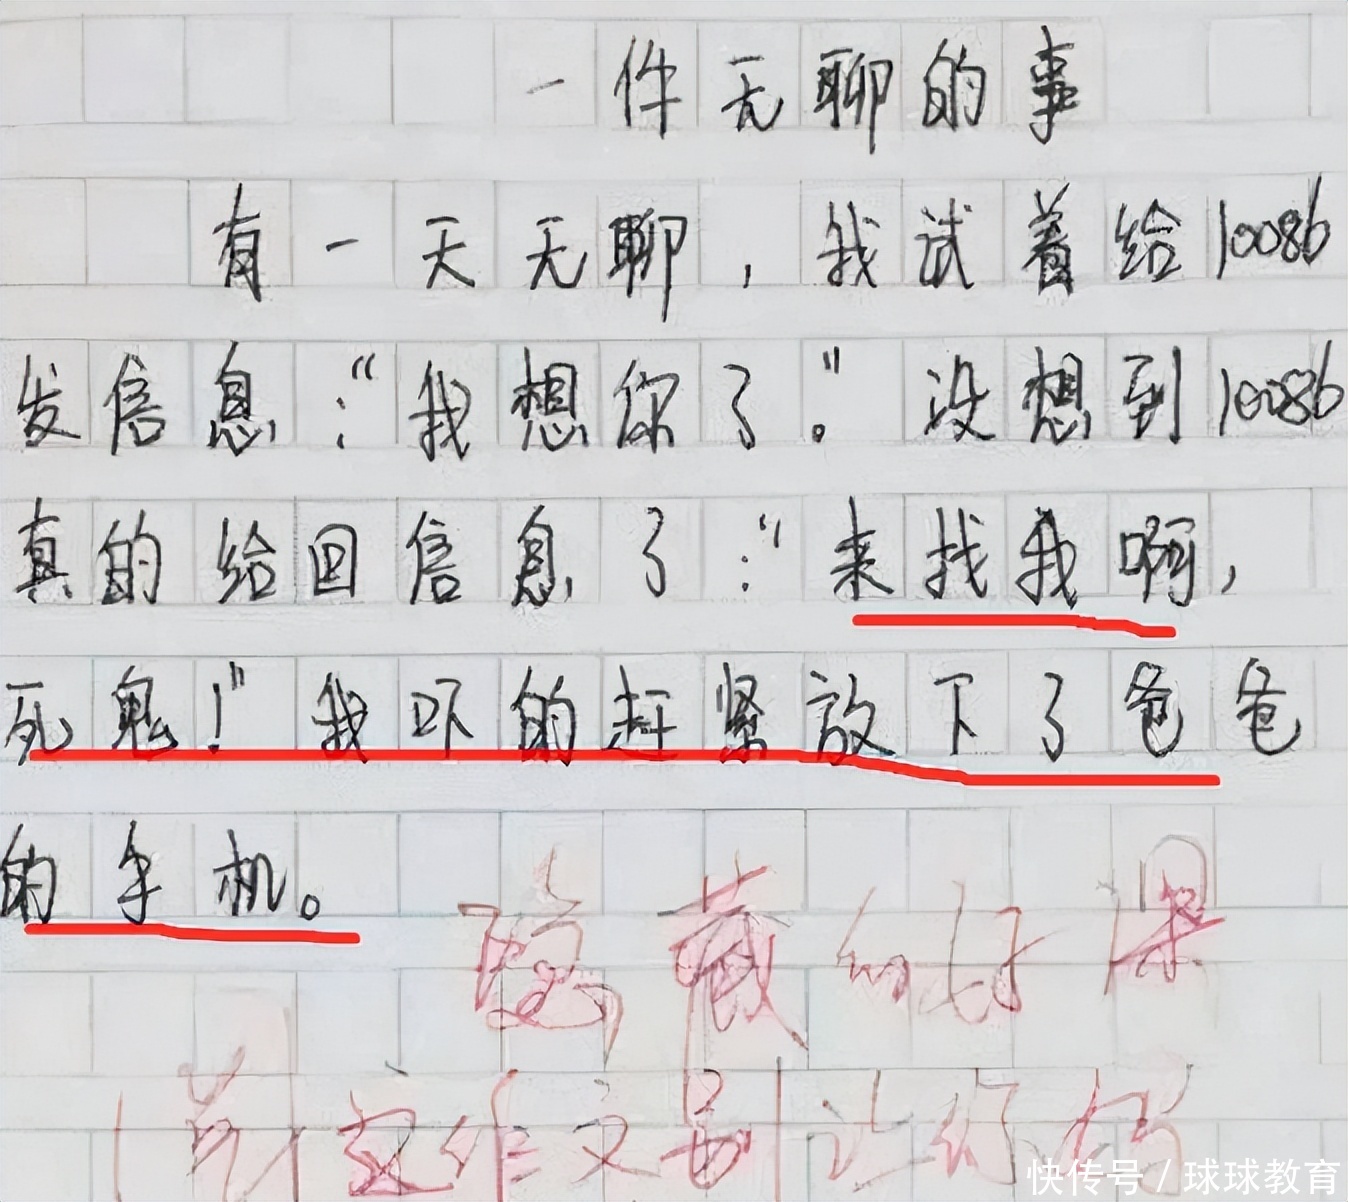 一件无聊的事
有一天无聊，我试着给10086
发信息：“我想你了。”没想到10086
真的给回信息了：“来找我啊，
死鬼！”我吓的赶紧放下了爸爸
的手机。
隐藏的好深
这文作文别让你妈
快传号／球球教育